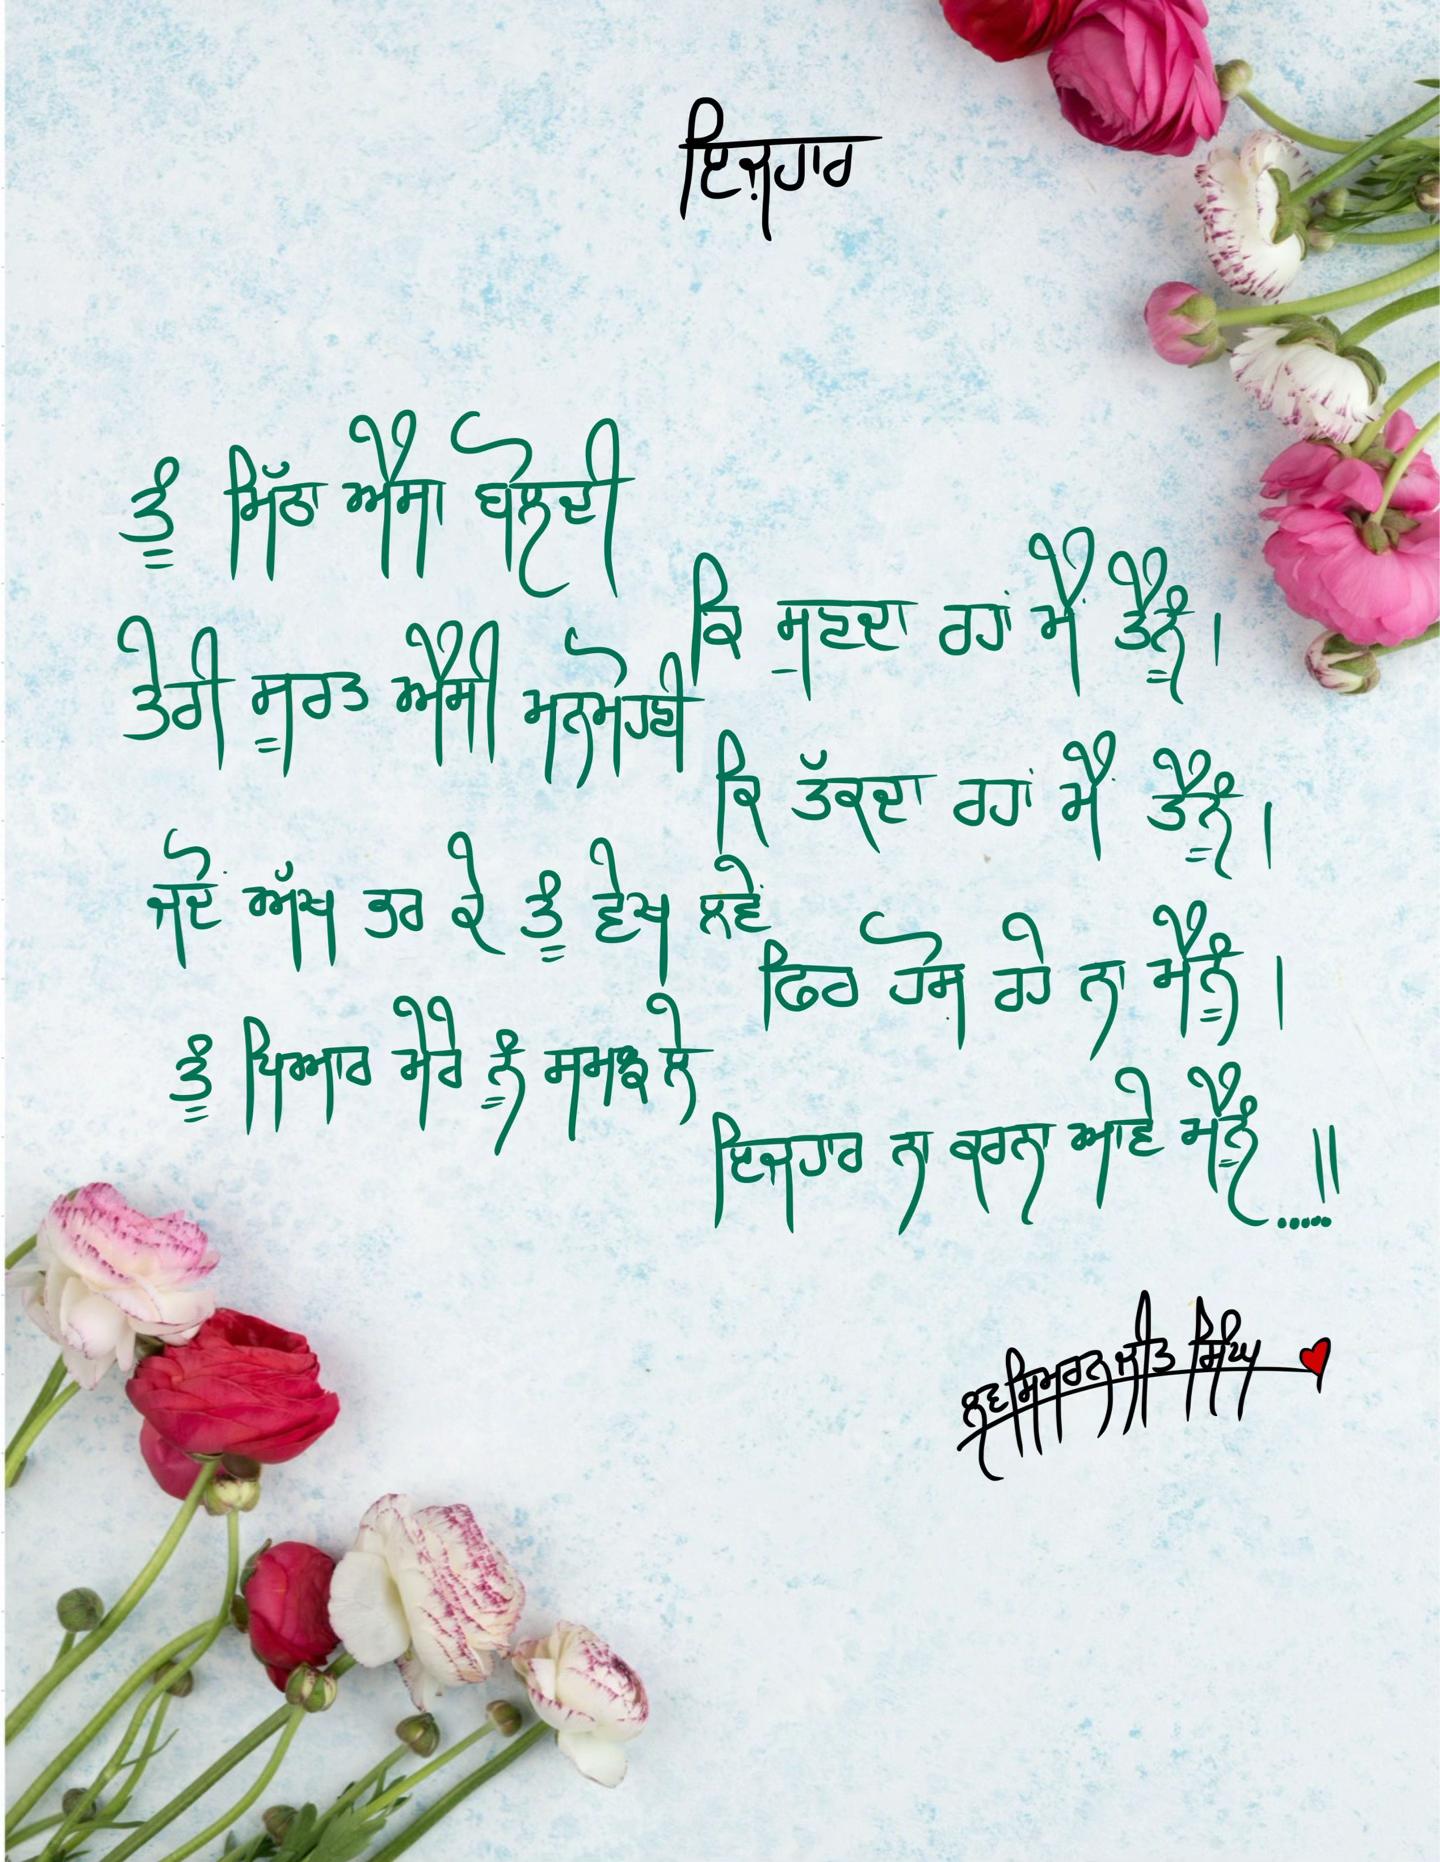 ਇਜ਼ਹਾਰ
ਤੂੰ ਮਿੱਠਾ ਐਸਾ ਬੋਲਦੀ
ਕਿ ਸੁਣਦਾ ਰਹਾਂ ਮੈਂ ਤੈਨੂੰ।
ਤੇਰੀ ਸੂਰਤ ਐਸੀ ਮਨਮੋਹਣੀ
ਕਿ ਤੱਕਦਾ ਰਹਾਂ ਮੈਂ ਤੈਨੂੰ।
ਜਦੋਂ ਅੱਖ ਭਰ ਕੇ ਤੂੰ ਵੇਖ ਲਵੇਂ
ਫਿਰ ਹੋਸ਼ ਰਹੇ ਨਾ ਮੈਨੂੰ।
ਤੂੰ ਪਿਆਰ ਮੇਰੇ ਨੂੰ ਸਮਝ ਲੇ
ਇਜ਼ਹਾਰ ਨਾ ਕਰਨਾ ਆਵੇ ਮੈਨੂੰ.....॥
ਲਵਸਿਮਰਨਜੀਤ ਸਿੰਘ